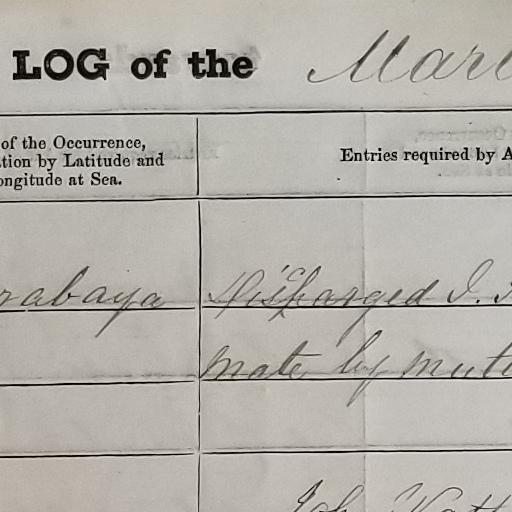 LOG of the Mar
of the Occurrence,
tion by Latitude and
ongitude at Sea.
Entries required by A
rabaya
Discharged J.
mate by mut
Joh